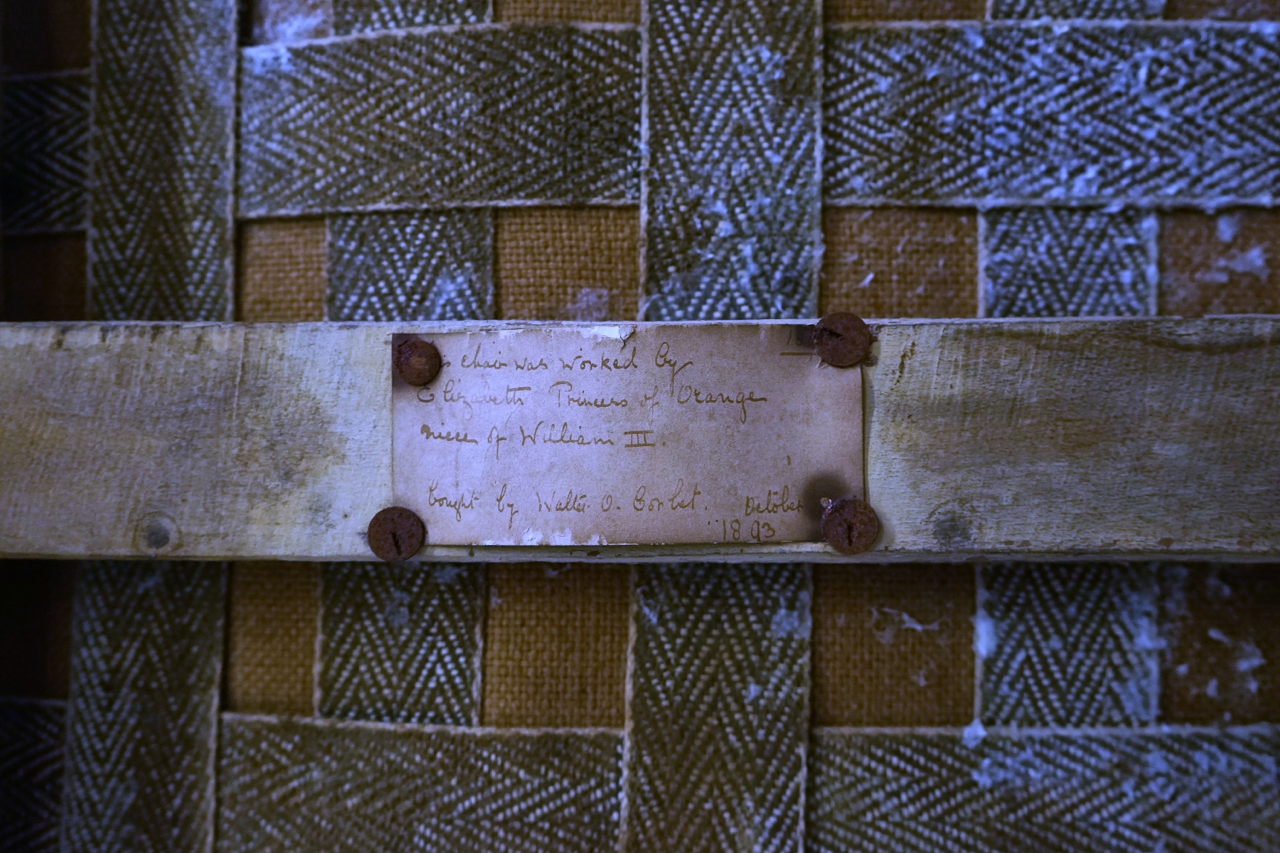 s chair was worked by
Elizabeth Princess of Orange
niece of William III.
bought by Walter O. Corbet. October
1893